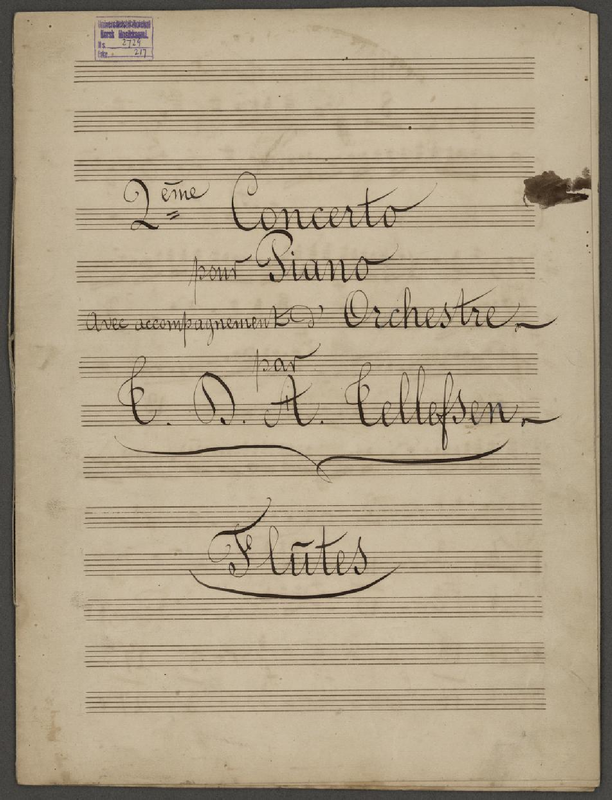 Ms. 2729
217
2ème Concerto
pour Piano
Avec accompagnement d' Orchestre
par
T. D. A. Tellefsen.
Flûtes